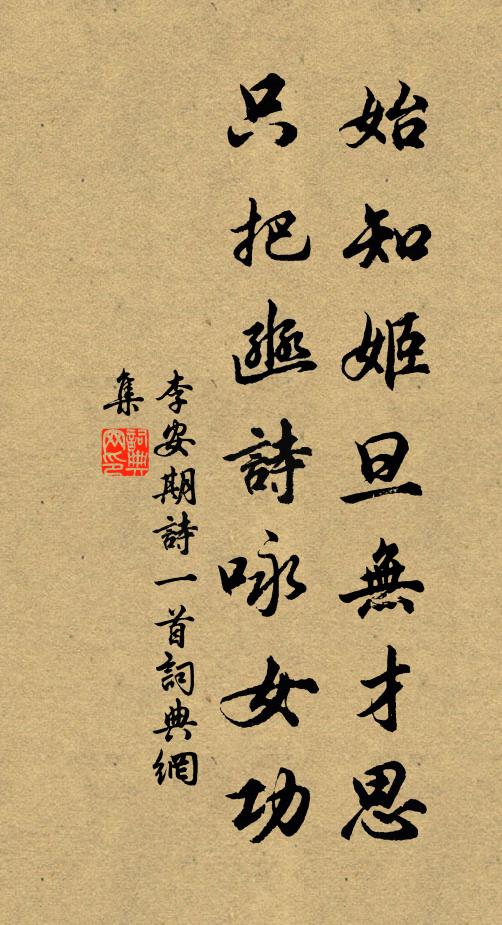 始知姬旦無才思
只把豳詩咏女功
李安期詩一首詞典網
集
詞典网印